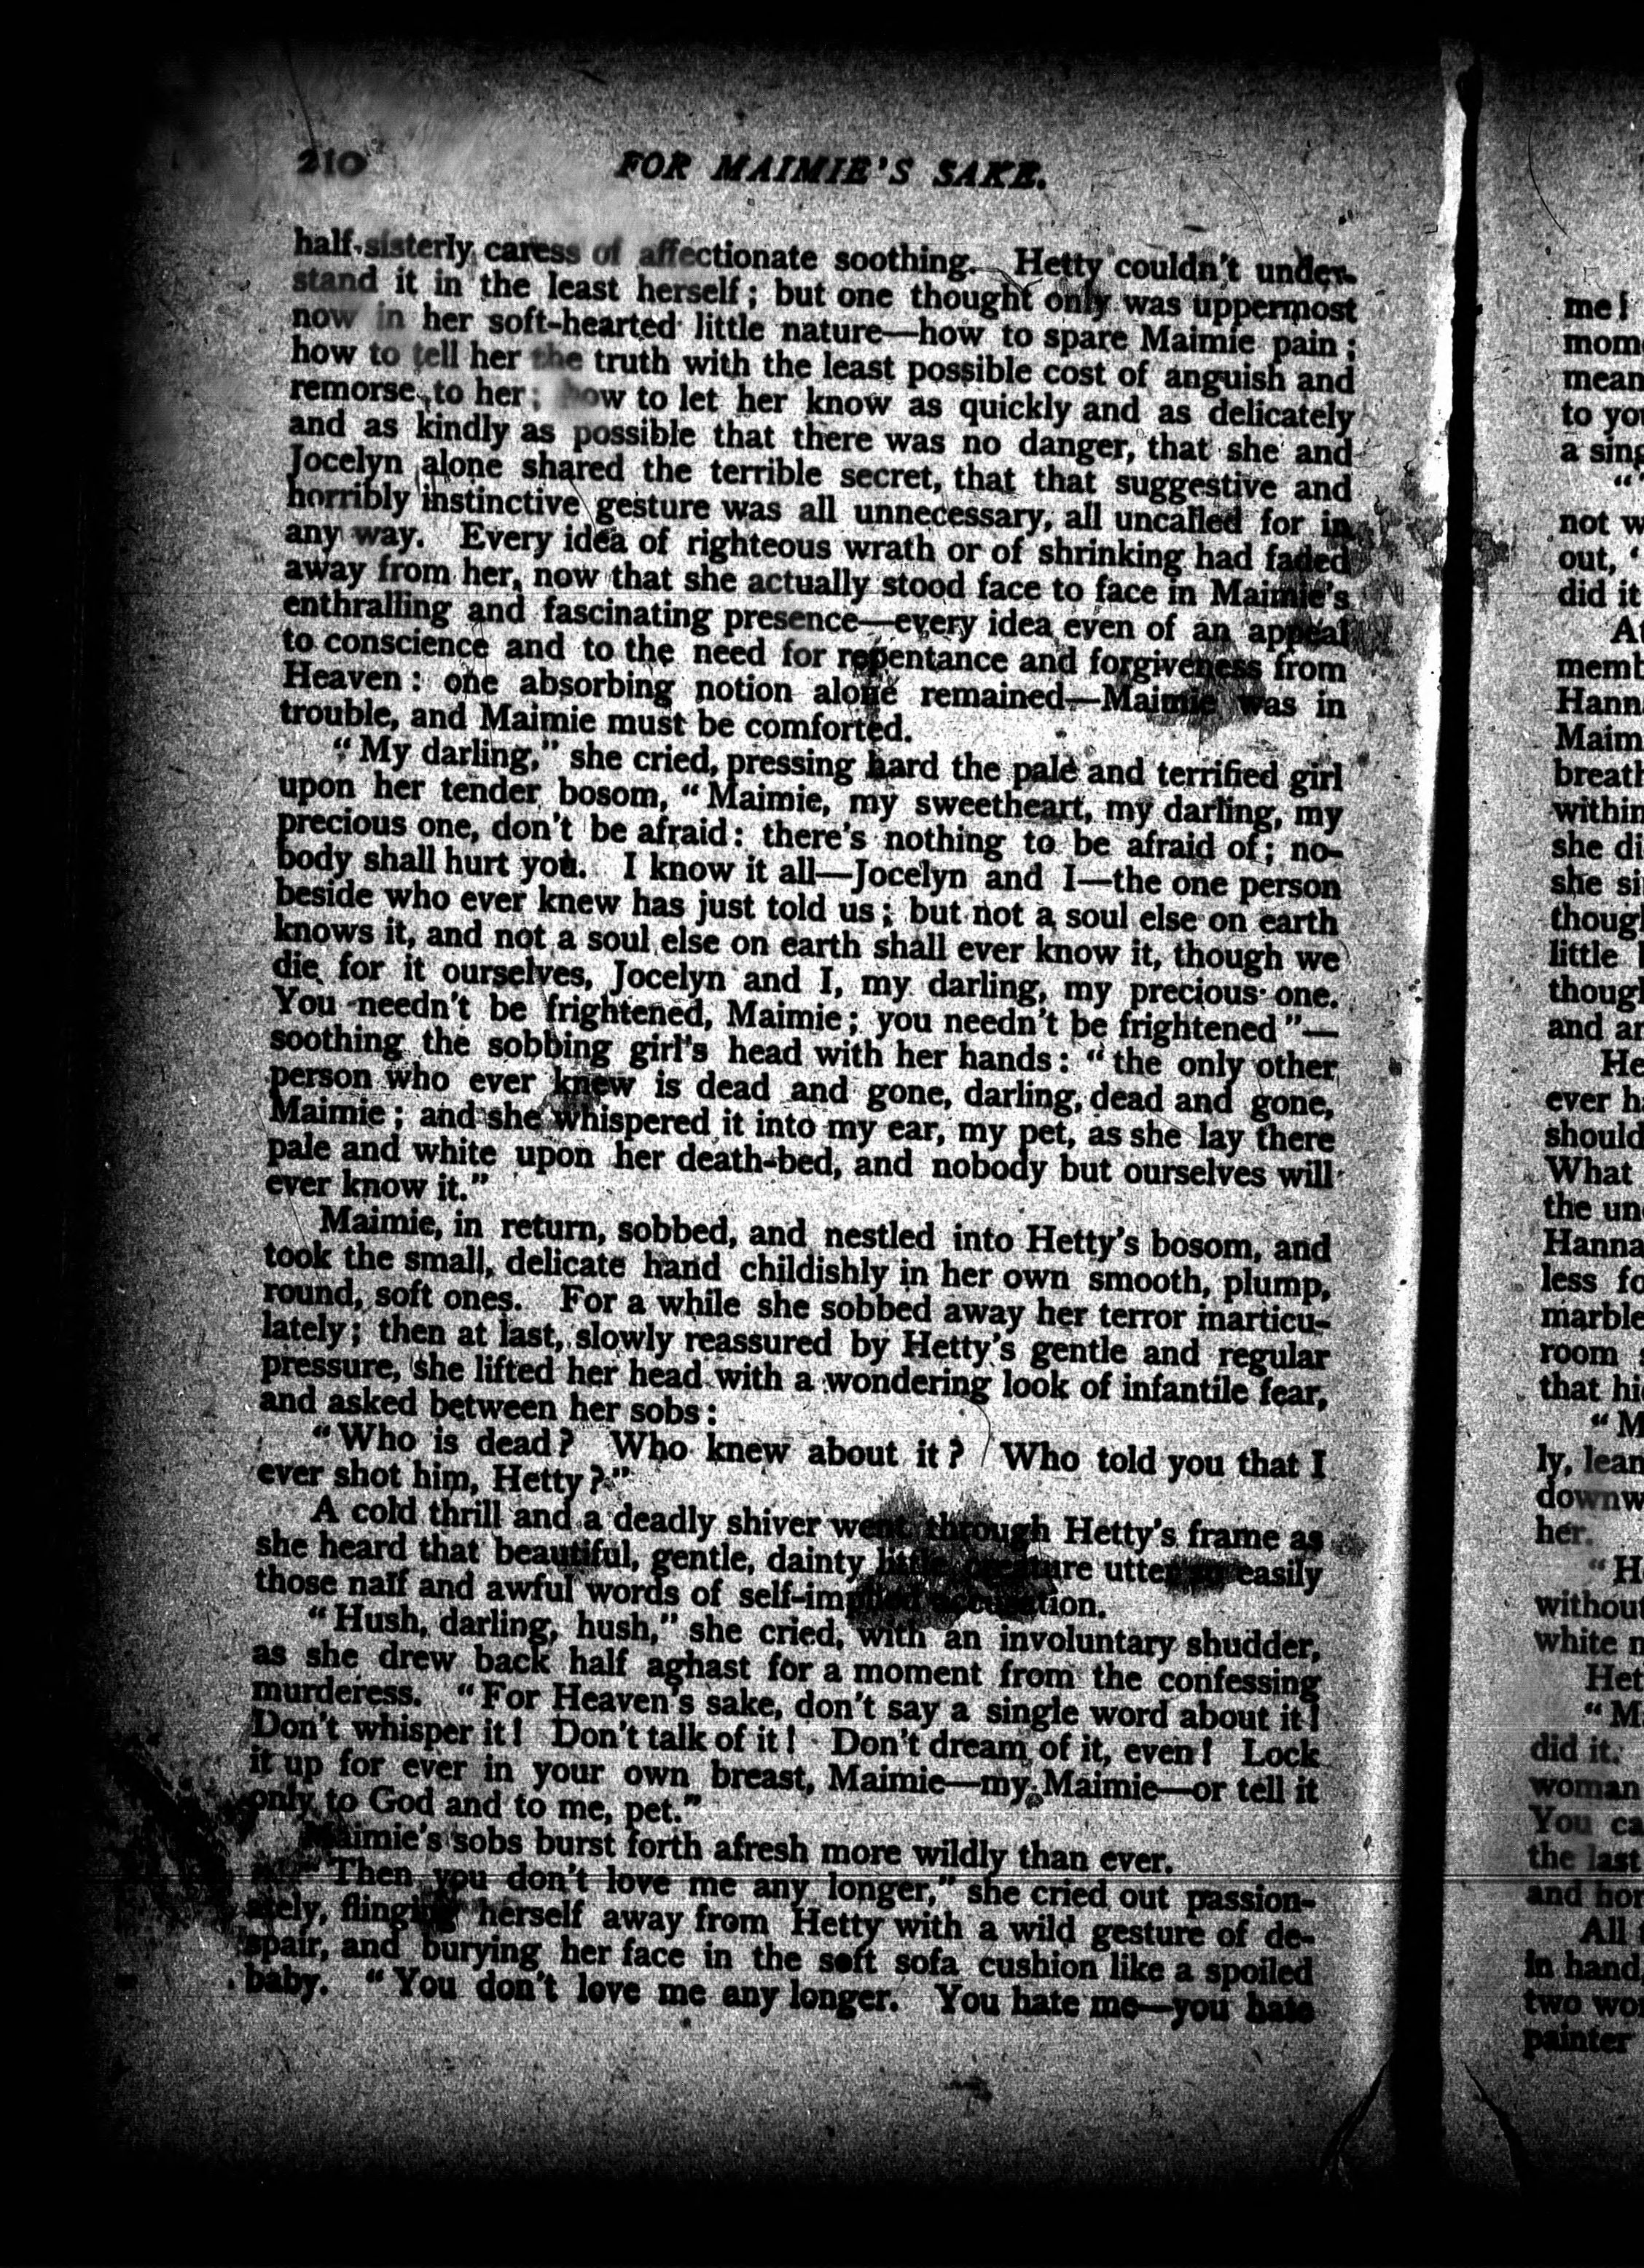 210
FOR MAIMIE'S SAKE.
half-sisterly caress of affectionate soothing. Hetty couldn't under-
stand it in the least herself; but one thought only was uppermost
now in her soft-hearted little nature—how to spare Maimie pain;
how to tell her the truth with the least possible cost of anguish and
remorse to her; how to let her know as quickly and as delicately
and as kindly as possible that there was no danger, that she and
Jocelyn alone shared the terrible secret, that that suggestive and
horribly instinctive gesture was all unnecessary, all uncalled for in
any way. Every idea of righteous wrath or of shrinking had faded
away from her, now that she actually stood face to face in Maimie's
enthralling and fascinating presence—every idea even of an appeal
to conscience and to the need for repentance and forgiveness from
Heaven: one absorbing notion alone remained—Maimie was in
trouble, and Maimie must be comforted.
"My darling," she cried, pressing hard the pale and terrified girl
upon her tender bosom, "Maimie, my sweetheart, my darling, my
precious one, don't be afraid: there's nothing to be afraid of; no-
body shall hurt you. I know it all—Jocelyn and I—the one person
beside who ever knew has just told us; but not a soul else on earth
knows it, and not a soul else on earth shall ever know it, though we
die for it ourselves, Jocelyn and I, my darling, my precious one.
You needn't be frightened, Maimie; you needn't be frightened"—
soothing the sobbing girl's head with her hands: "the only other
person who ever knew is dead and gone, darling, dead and gone,
Maimie; and she whispered it into my ear, my pet, as she lay there
pale and white upon her death-bed, and nobody but ourselves will
ever know it."
Maimie, in return, sobbed, and nestled into Hetty's bosom, and
took the small, delicate hand childishly in her own smooth, plump,
round, soft ones. For a while she sobbed away her terror inarticu-
lately; then at last, slowly reassured by Hetty's gentle and regular
pressure, she lifted her head with a wondering look of infantile fear,
and asked between her sobs:
"Who is dead? Who knew about it? Who told you that I
ever shot him, Hetty?"
A cold thrill and a deadly shiver went through Hetty's frame as
she heard that beautiful, gentle, dainty little creature utter so easily
those naïf and awful words of self-implied accusation.
"Hush, darling, hush," she cried, with an involuntary shudder,
as she drew back half aghast for a moment from the confessing
murderess. "For Heaven's sake, don't say a single word about it!
Don't whisper it! Don't talk of it! Don't dream of it, even! Lock
it up for ever in your own breast, Maimie—my Maimie—or tell it
only to God and to me, pet."
Maimie's sobs burst forth afresh more wildly than ever.
"Then you don't love me any longer," she cried out passion-
ately, flinging herself away from Hetty with a wild gesture of de-
spair, and burying her face in the soft sofa cushion like a spoiled
baby. "You don't love me any longer. You hate me—you hate
me!
mom
mean
to yo
a sing
"
not w
out, '
did it
A
memb
Hann
Maim
breath
within
she di
she si
thoug
little
thoug
and a
He
ever h
should
What
the un
Hanna
less fo
marble
room
that hi
"M
ly, lean
downw
her.
"H
without
white m
Het
"M
did it.
woman
You ca
the last
and hor
All
in hand
two wo
painter